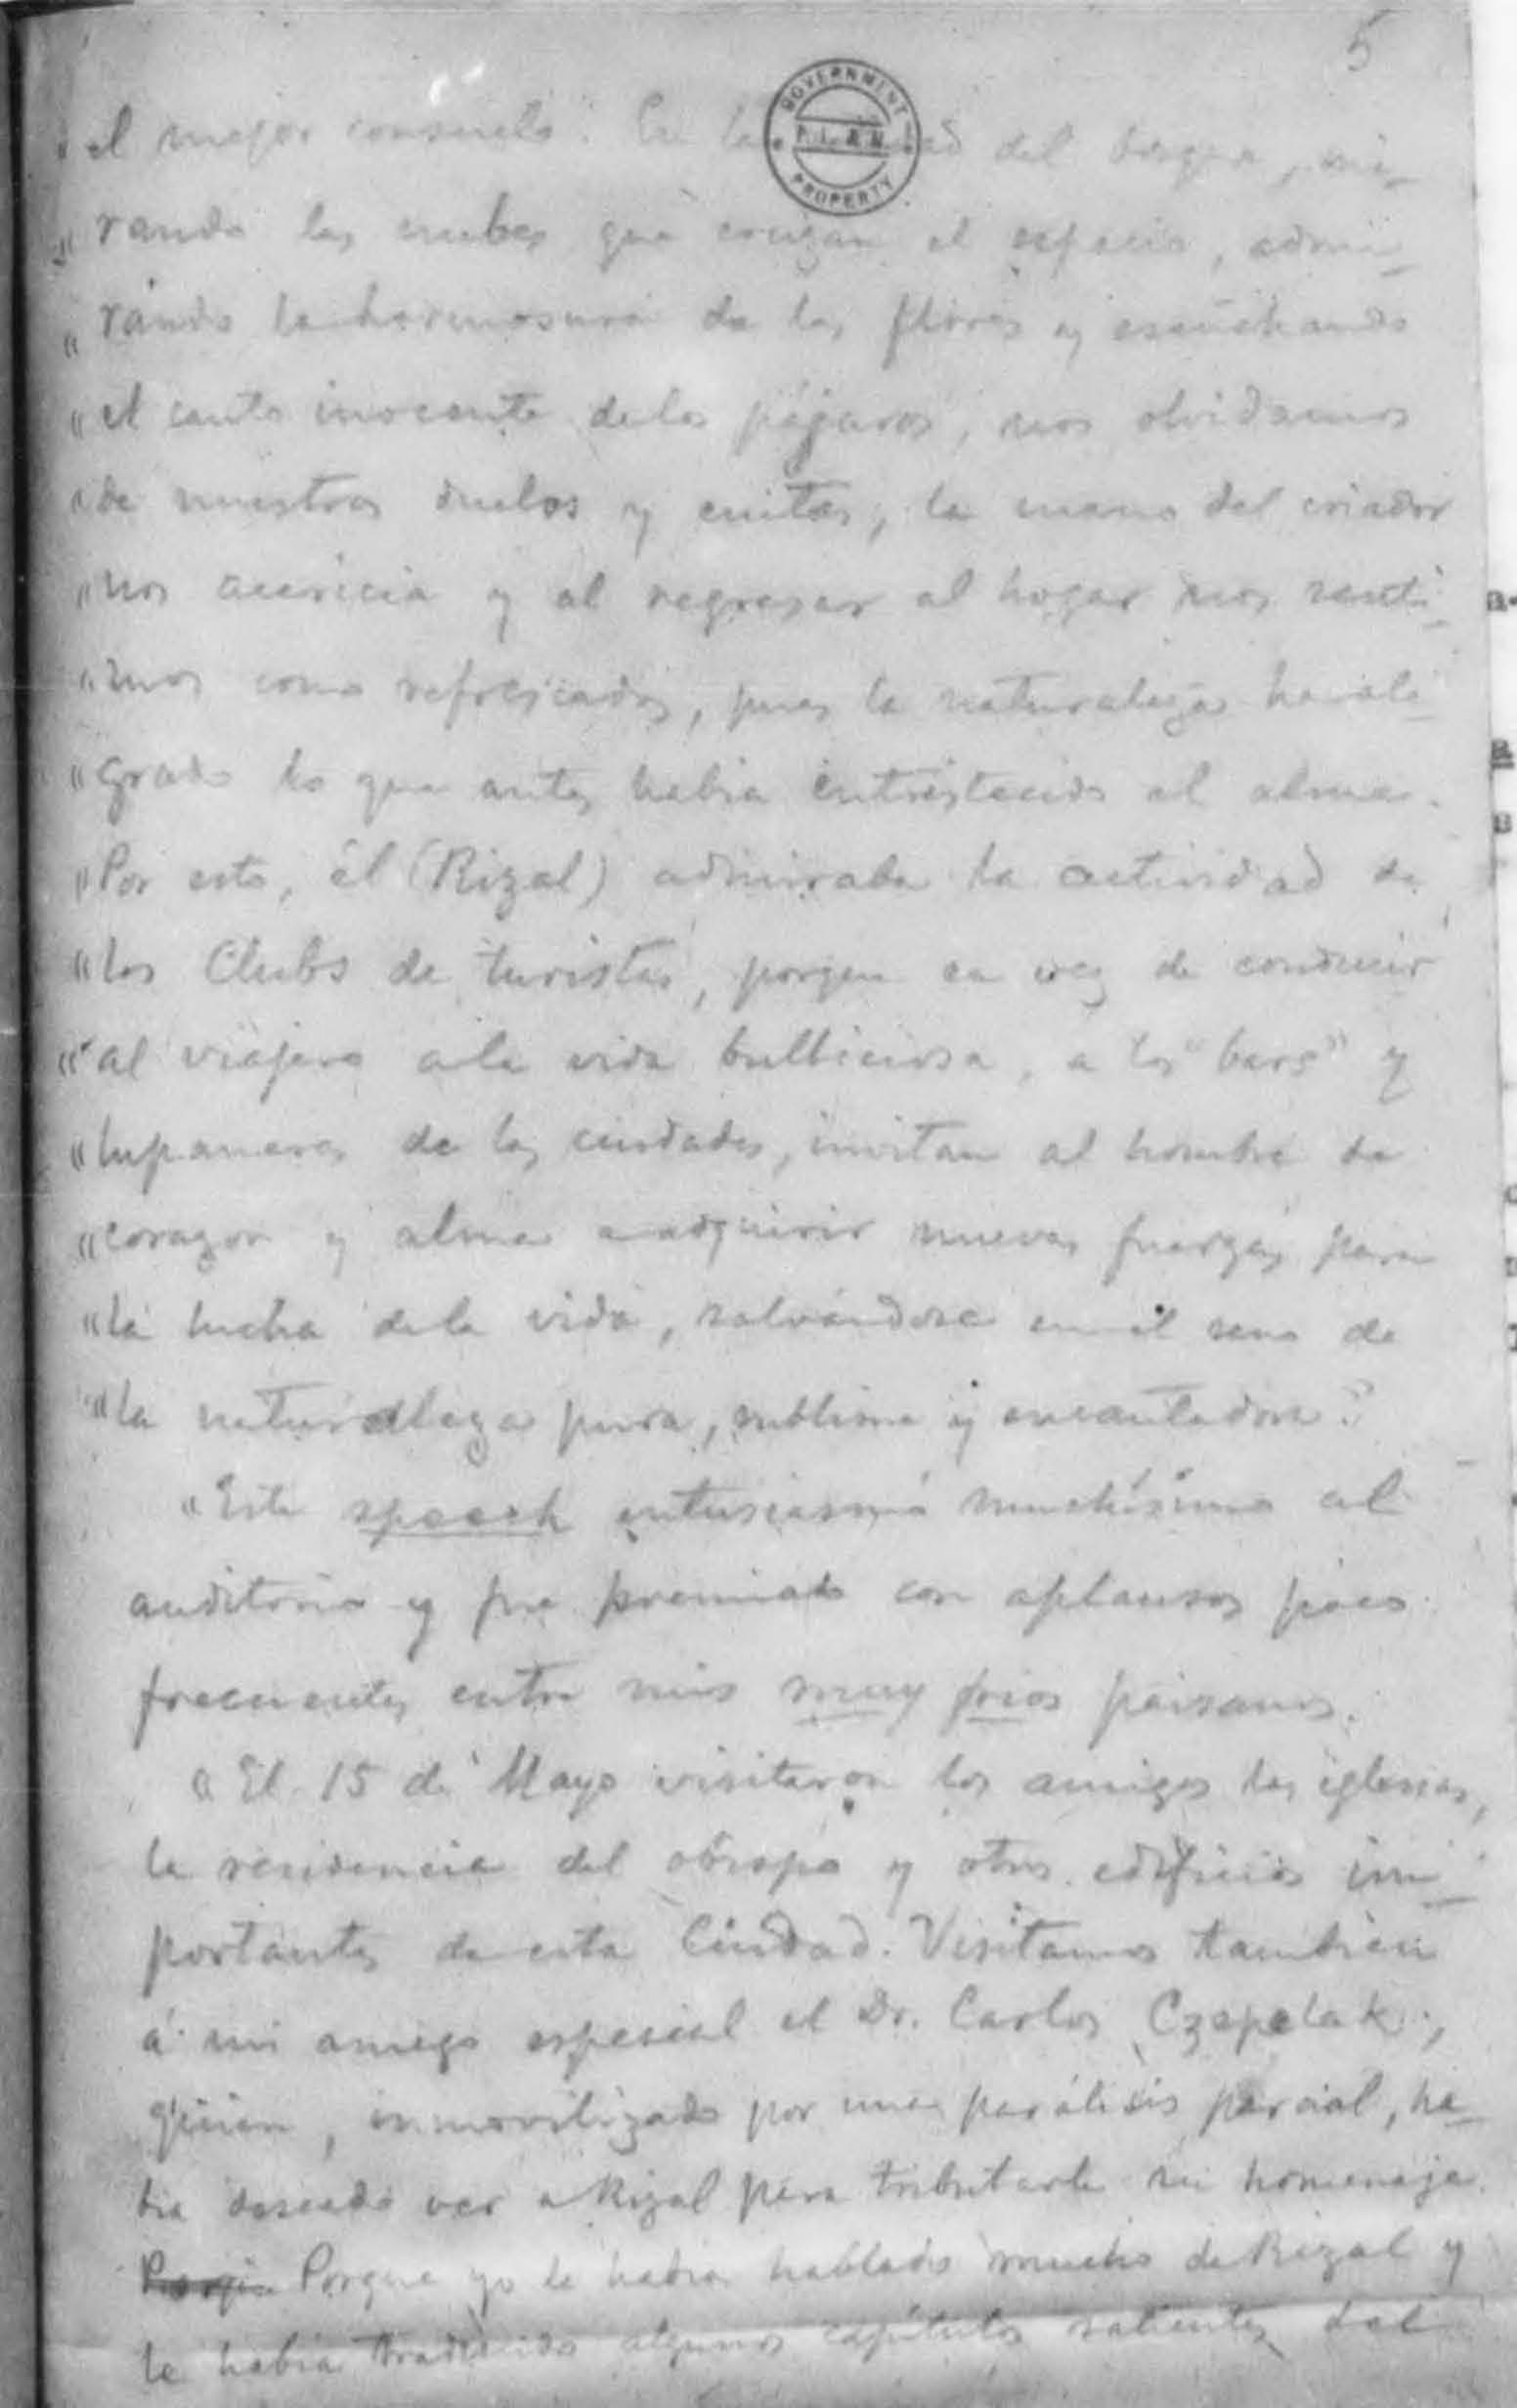 5
GOVERNMENT
P.L. & M.
PROPERTY
"el mejor consuelo. En la del bosque, mi-
"rando las nubes que cruzan el espacio, admi-
"rando la hermosura de las flores y escuchando
"el canto inocente de los pájaros, nos olvidamos
"de nuestros duelos y cuitas, la mano del criador
"nos acaricia y al regresar al hogar nos senti-
"mos como refrescados, pues la naturaleza ha ale-
"grado lo que antes habia entristecido al alma.
"Por esto, él (Rizal) admiraba la actividad de
"los Clubs de turistas, porque en vez de conducir
"al viajero a la vida bulliciosa, a los "bars" y
"lupanares de las ciudades, invitan al hombre de
"corazon y alma a adquirir nuevas fuerzas para
"la lucha de la vida, salvándose en el seno de
"la naturaleza pura, sublime y encantadora."
"Este speech entusiasmó muchísimo al
auditorio y fue premiado con aplausos poco
frecuentes entre mis muy frios paisanos.
"El 15 de Mayo visitaron los amigos las iglesias,
la residencia del obispo y otros edificios im-
portantes de esta Ciudad. Visitamos tambien
á mi amigo especial el Dr. Carlos Czepelak,
quien, inmovilizado por una parálisis parcial, ha-
bia deseado ver a Rizal para tributarle su homenaje.
Porque Porque yo le habia hablado mucho de Rizal y
le habia traducido algunos capítulos salientes del